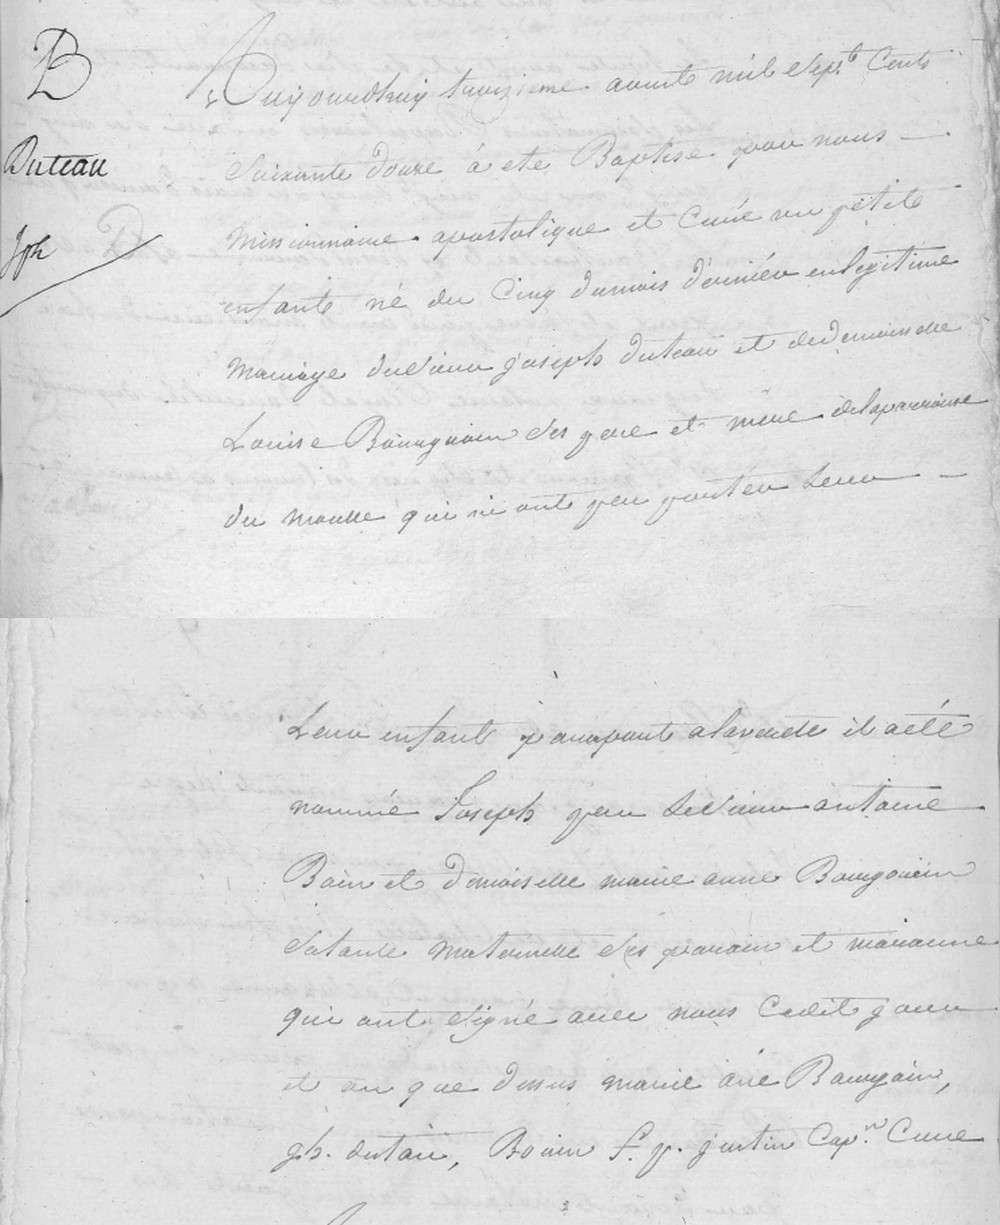 B
Duteau
Jph
Aujourdhuy treizieme aoust mil Sept Cents
Soixante douze à eté Baptisé par nous
Missionnaire apostolique et Curé un petit
enfant né du Cinq du mois dernier en legitime
Mariage du Sieur Joseph duteau et de demoiselle
Louise Bourguoin Ses pere et mere de la paroisse
du moulle qui n'ont peu porter Leur
Leur enfant a la ronde il a été
nommé Joseph par Le Sieur antoine
Boin et demoiselle marie anne Bourgoüin
Sa tante Maternelle Ses parain et maraine
qui ont Signé avec nous Cedit jour
et an que dessus marie ane Bourgoin,
jh. dutau, Boüin f. p. justin Capn. Cure